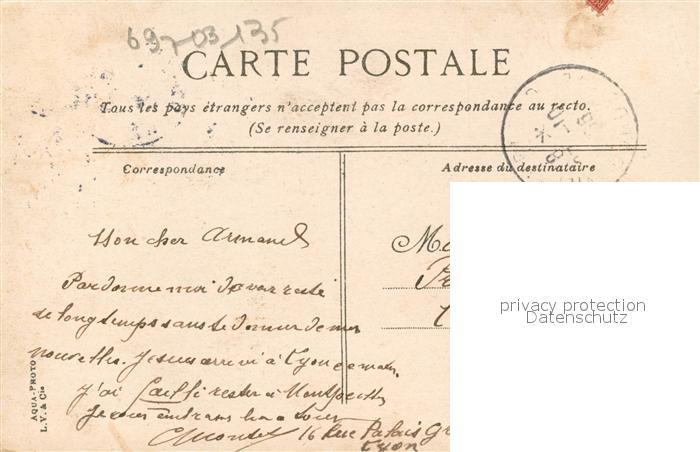 697-03135
CARTE POSTALE
Tous les pays étrangers n'acceptent pas la correspondance au recto.
(Se renseigner à la poste.)
Correspondance
Adresse du destinataire
Mon cher Armand
Pardonne moi d'avoir resté
si longtemps sans te donner de mes
nouvelles. Je suis arrivé à Lyon ce matin.
J'ai failli rester à Montpellier
Je suis
16 Rue Palais Gr
Lyon
M
privacy protection
Datenschutz
AQUA-PHOTO
L.V. & Cie